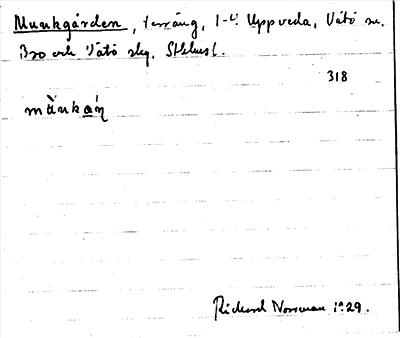 Munkgården, terräng, 1 Uppveda, Vätö sn.
Bro och Vätö skg, Sthlms l.
318
mùnkáṇ
Richard Norrman 1929.